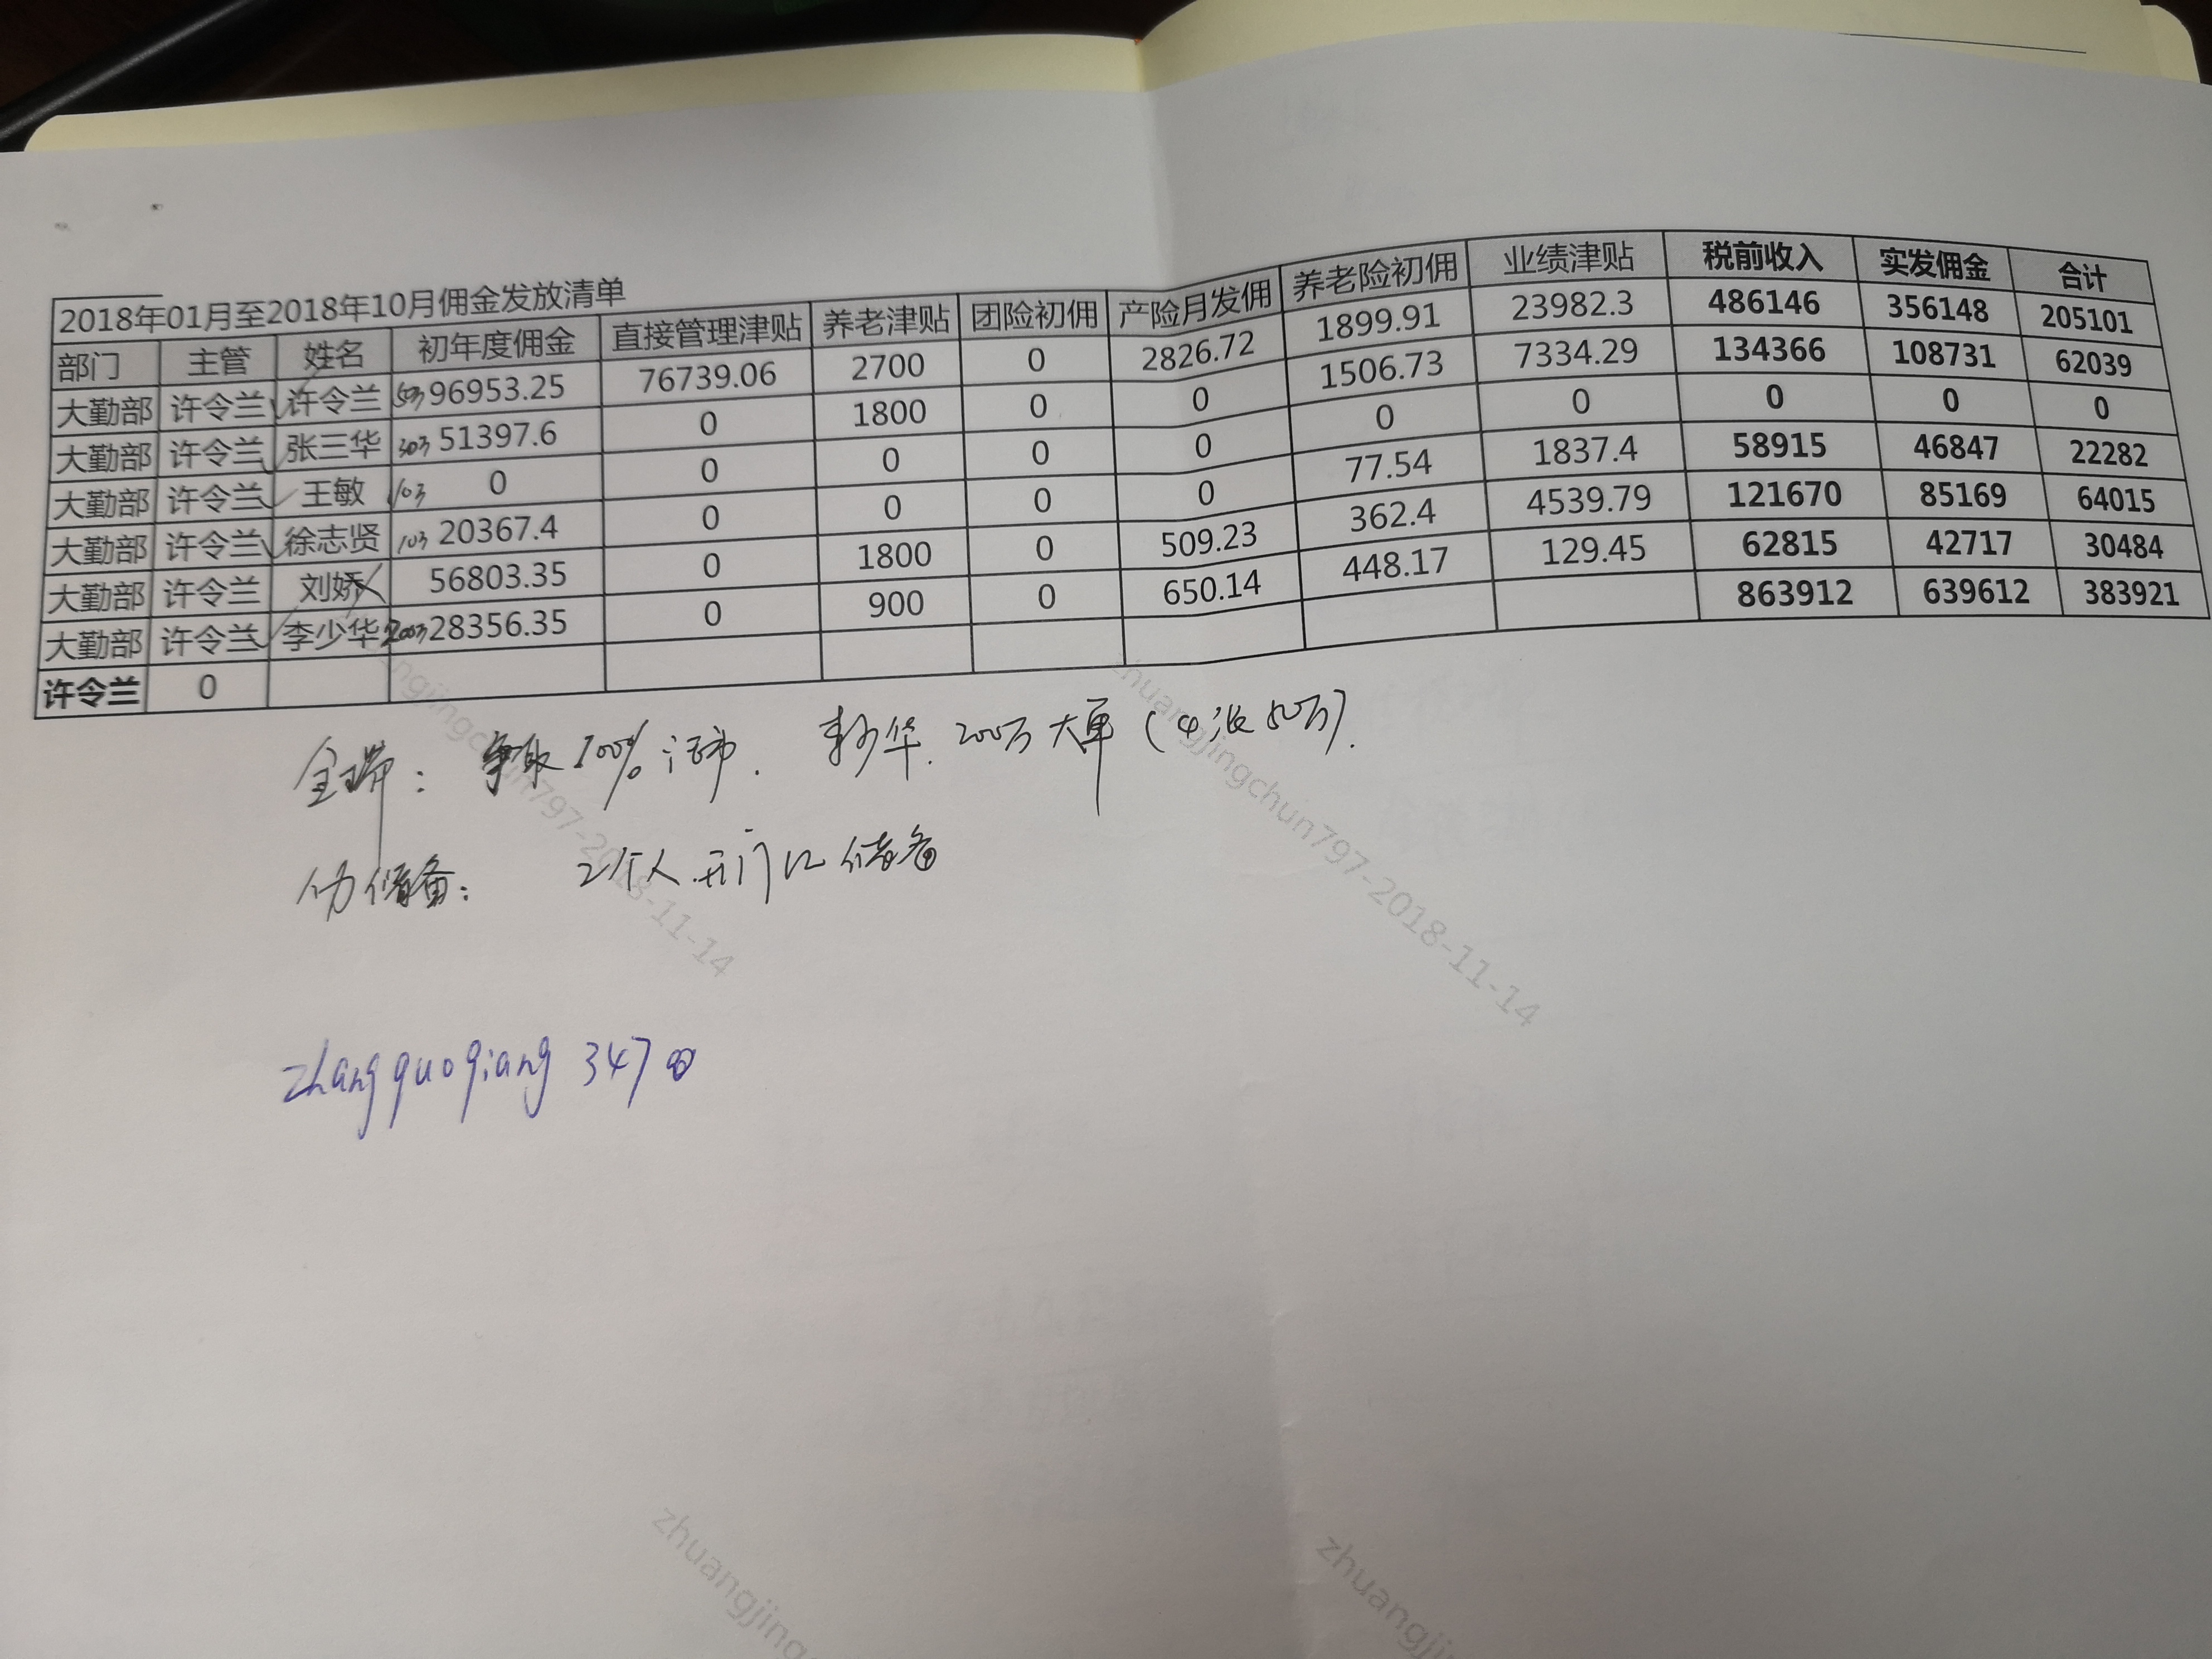 2018年01月至2018年10月佣金发放清单
部门 主管 姓名 初年度佣金 直接管理津贴 养老津贴 团险初佣 产险月发佣 养老险初佣 业绩津贴 税前收入 实发佣金 合计
大勤部 许令兰 许令兰 50万 96953.25 76739.06 2700 0 2826.72 1899.91 23982.3 486146 356148 205101
大勤部 许令兰 张三华 30万 51397.6 0 1800 0 0 1506.73 7334.29 134366 108731 62039
大勤部 许令兰 王敏 10万 0 0 0 0 0 0 0 0 0 0
大勤部 许令兰 徐志贤 10万 20367.4 0 0 0 0 77.54 1837.4 58915 46847 22282
大勤部 许令兰 刘娇 56803.35 0 1800 0 509.23 362.4 4539.79 121670 85169 64015
大勤部 许令兰 李少华 200万 28356.35 0 900 0 650.14 448.17 129.45 62815 42717 30484
许令兰 0 863912 639612 383921
全瑞: 争取100% 活动. 李少华. 200万大单(4张50万).
储备: 2个人.开门红储备
zhangguoqiang 347
zhuangjingchun797-2018-11-14
zhuangjingchun797-2018-11-14
zhuangjing
zhuangji